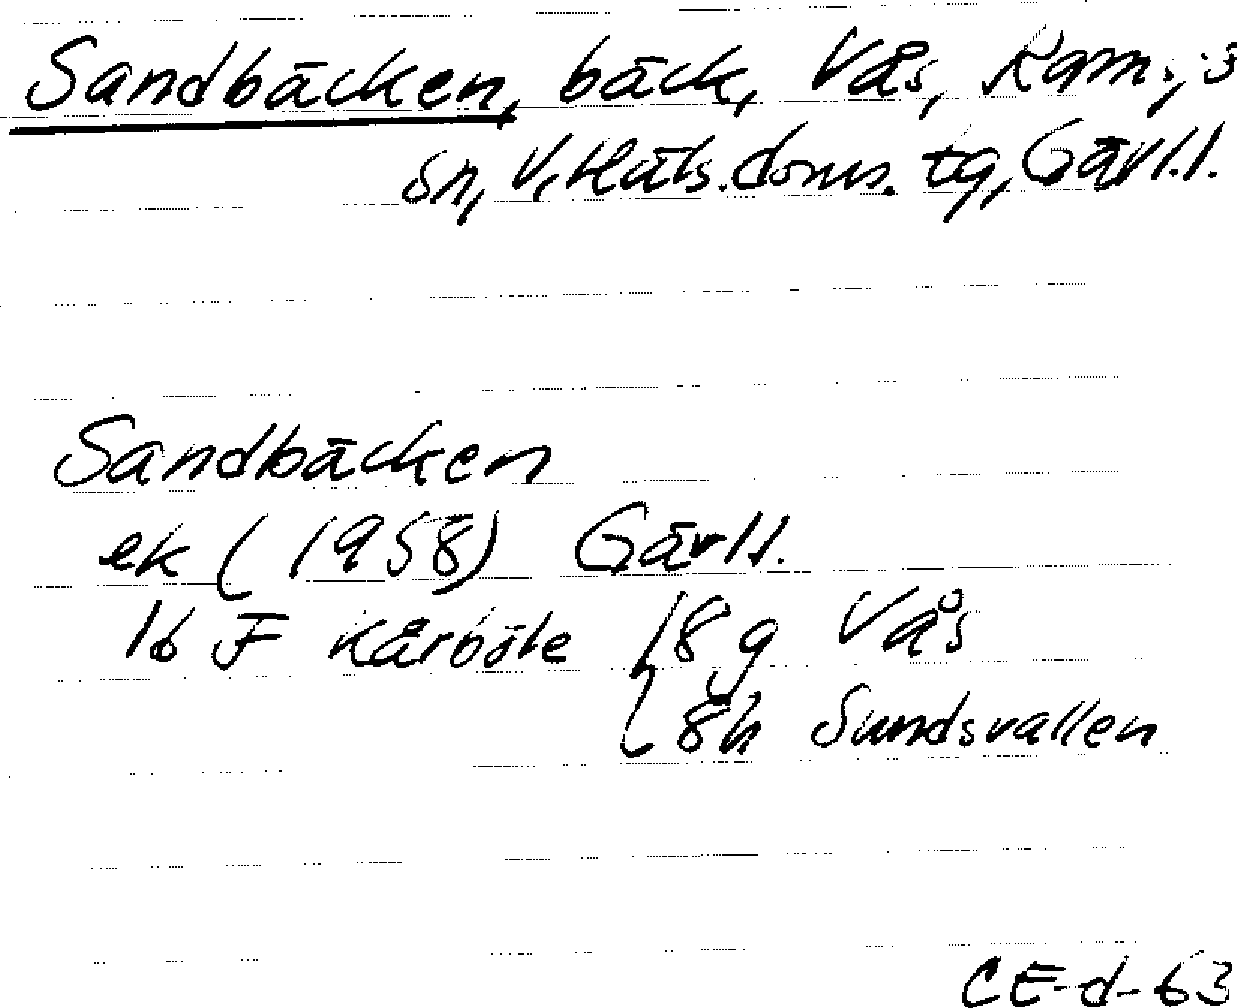 Sandbäcken, bäck, Vås, Ramsj:s
sn, V. Häls. doms. tg, Gävl.l.
Sandbäcken
ek (1958) Gävl.l.
16 F Kårböle 8g Vås
8h Sundsvallen
CE-d-63